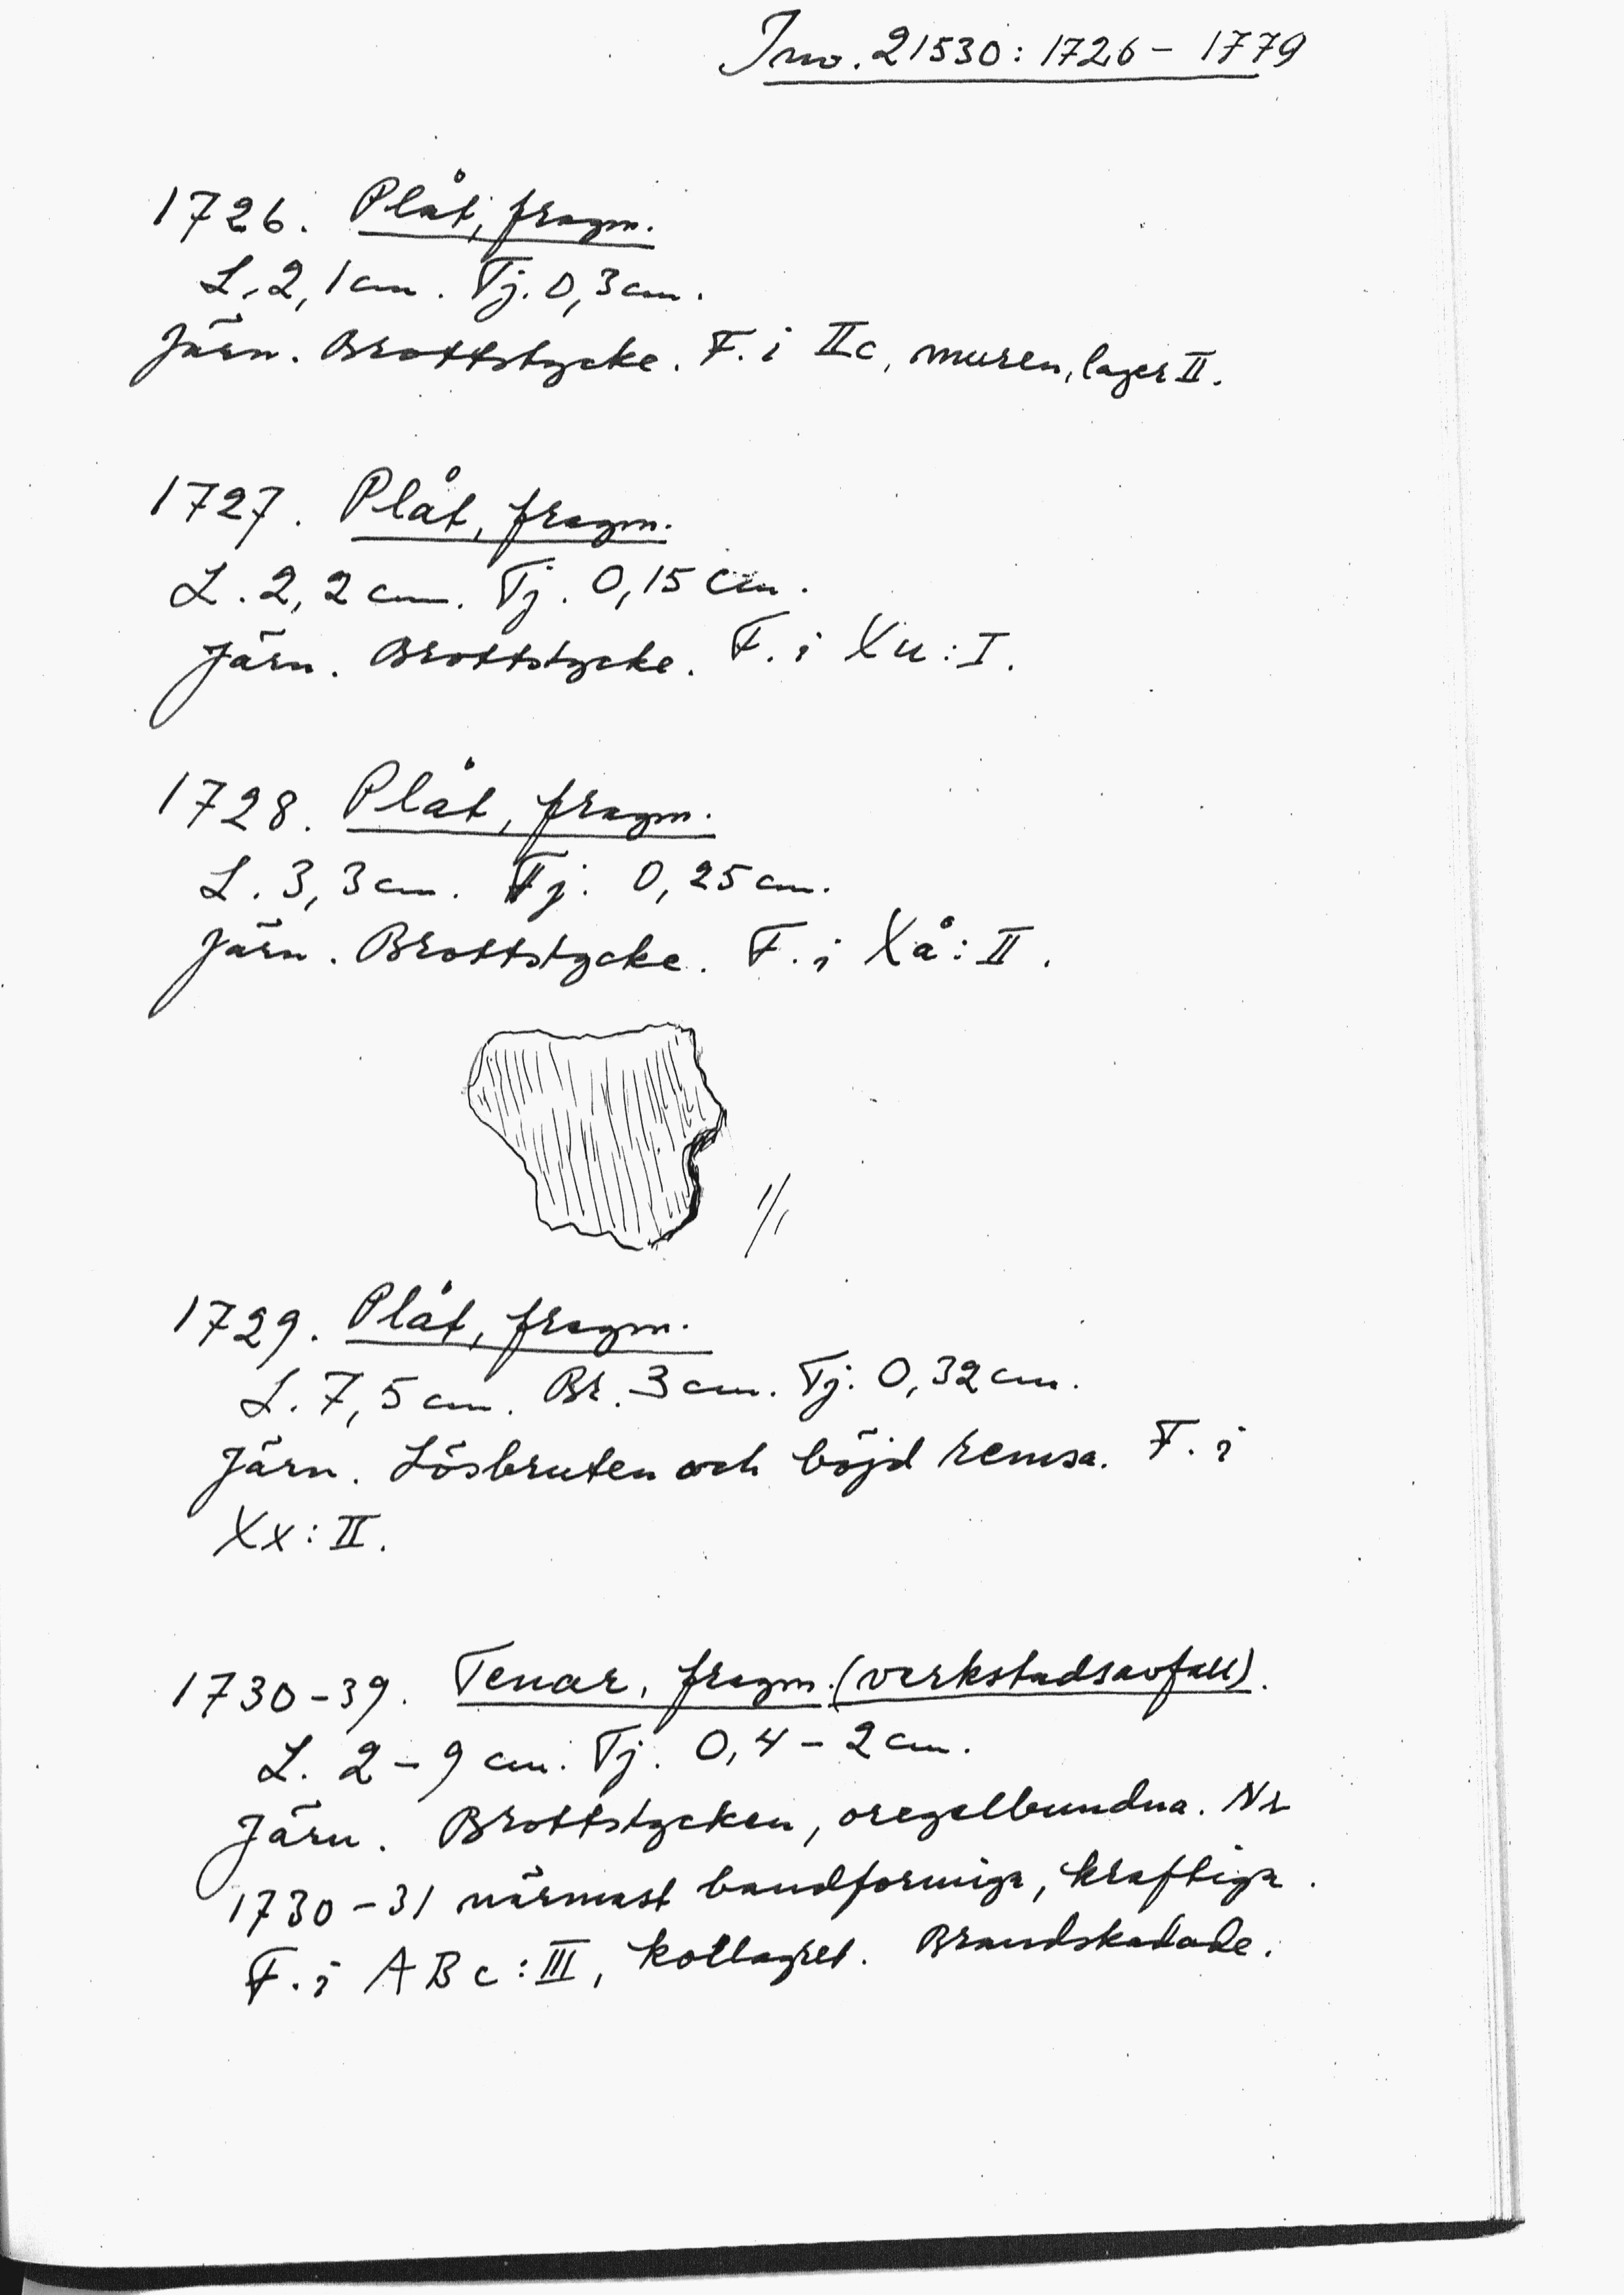 Inv. 21530: 1726 – 1779
1726. Plåt, fragm.
L. 2,1 cm. Tj. 0,3 cm.
Järn. Brottstycke. F. i IIc, muren, lager II.
1727. Plåt, fragm.
L. 2,2 cm. Tj. 0,15 cm.
Järn. Brottstycke. F. i Xu: I.
1728. Plåt, fragm.
L. 3,3 cm. Tj. 0,25 cm.
Järn. Brottstycke. F. i Xå: II.
1/1
1729. Plåt, fragm.
L. 7,5 cm. Br. 3 cm. Tj. 0,32 cm.
Järn. Lösbruten och böjd remsa. F. i
Xx: II.
1730-39. Tenar, fragm. (verkstadsavfall).
L. 2 – 9 cm. Tj. 0,4 – 2 cm.
Järn. Brottstycken, oregelbundna. Nr
1730-31 närmast bandformiga, kraftiga.
F. i ABc: III, kollagret. Brandskadade.